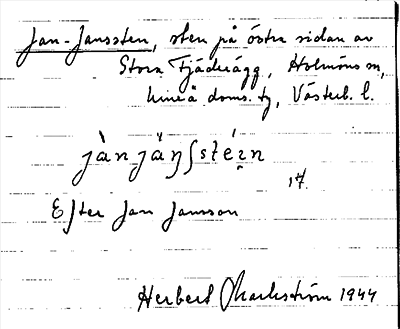 Jan-Janssten, sten på östra sidan av
Stora Fjäderägg, Holmöns sn,
Umeå doms. tg, Västerb. l.
jàn jä́ŋʃstéi̯n
Efter Jan Jansson
Herbert Markström 1944